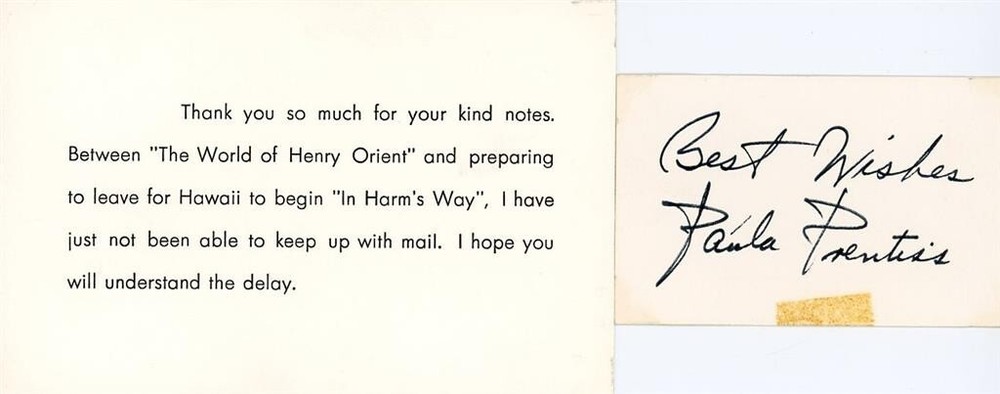 Thank you so much for your kind notes.
Between "The World of Henry Orient" and preparing
to leave for Hawaii to begin "In Harm's Way", I have
just not been able to keep up with mail. I hope you
will understand the delay.
Best Wishes
Paula Prentiss